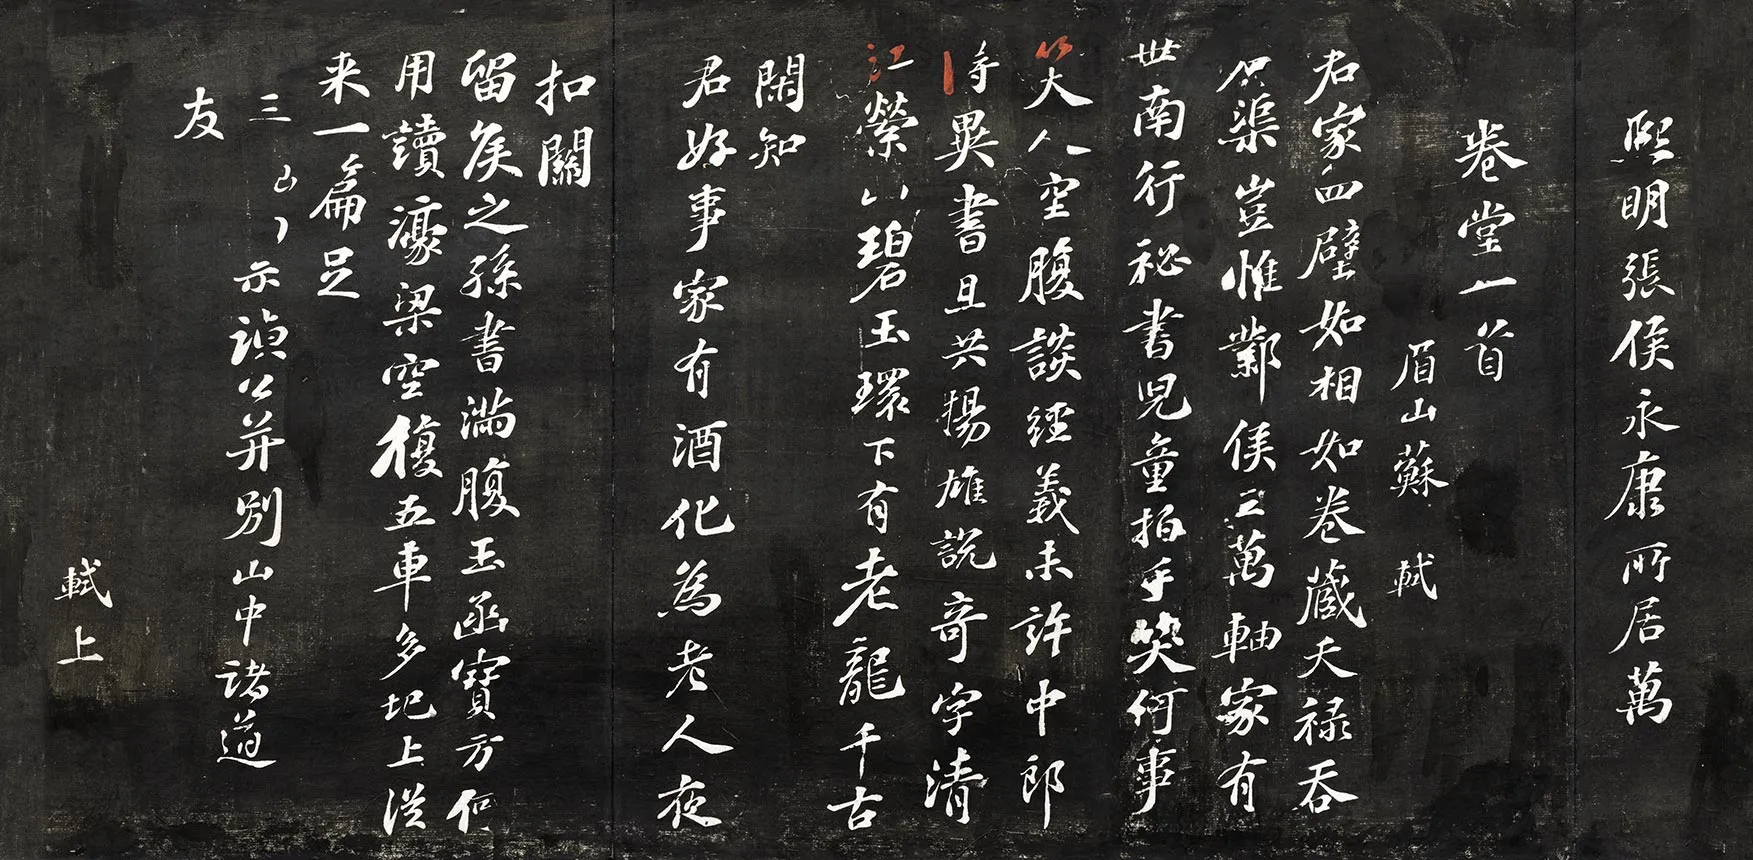 熙明張侯永康所居萬
卷堂一首
眉山蘇 軾
君家四壁如相如卷藏天禄吞
石渠豈惟鄴侯三萬軸家有
世南行祕書兒童拍手笑何事
笑人空腹談經義未許中郎
得異書且共揚雄說奇字清
江縈山碧玉環下有老龍千古
閑知
君好事家有酒化為老人夜
扣關
留侯之孫書滿腹玉函寶方何
用讀濠梁空復五車多圯上從
来一篇足
三
示禎公并別山中諸道
友
軾上